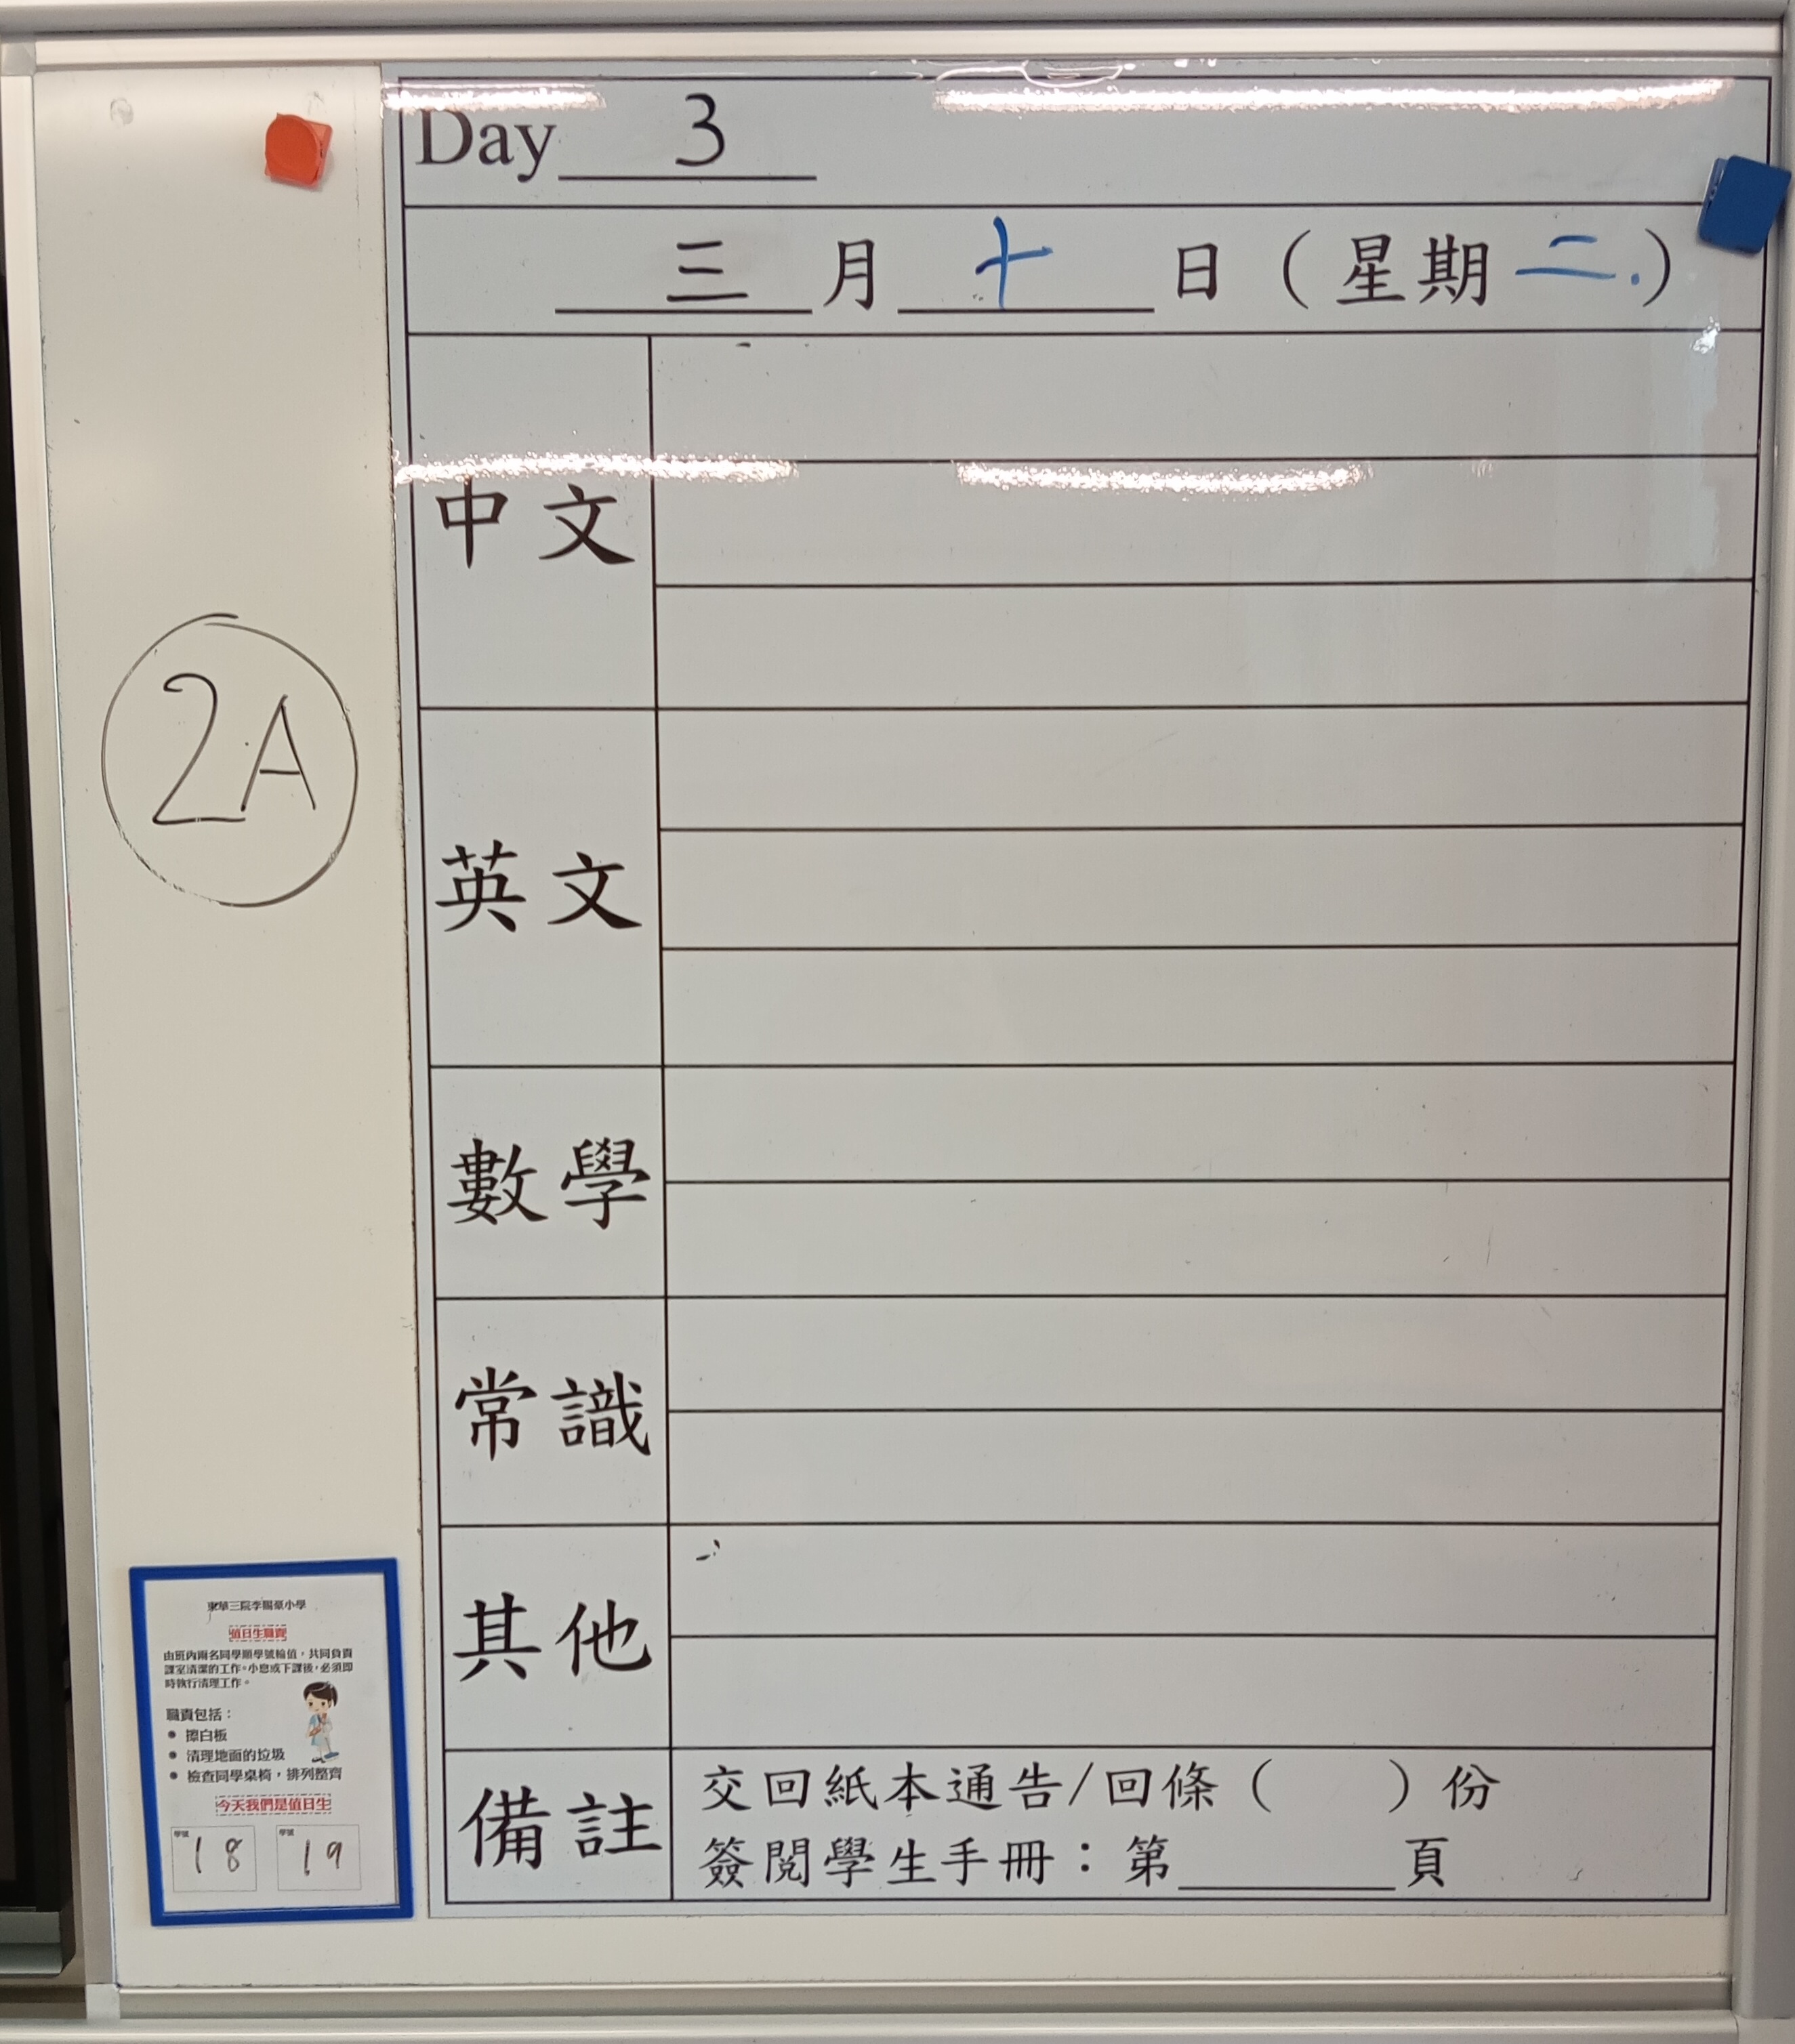 Day 3
三 月 十 日 ( 星期 二. )
中文
2A
英文
數學
常識
其他
備註
交回紙本通告/回條 (     ) 份
簽閱學生手冊：第______頁
東華三院李賜豪小學
值日生職責
由班內兩名同學順學號輪值，共同負責
課室清潔的工作。小息或下課後，必須即
時執行清理工作。
職責包括：
• 擦白板
• 清理地面的垃圾
• 檢查同學桌椅，排列整齊
今天我們是值日生
學號 18 學號 19